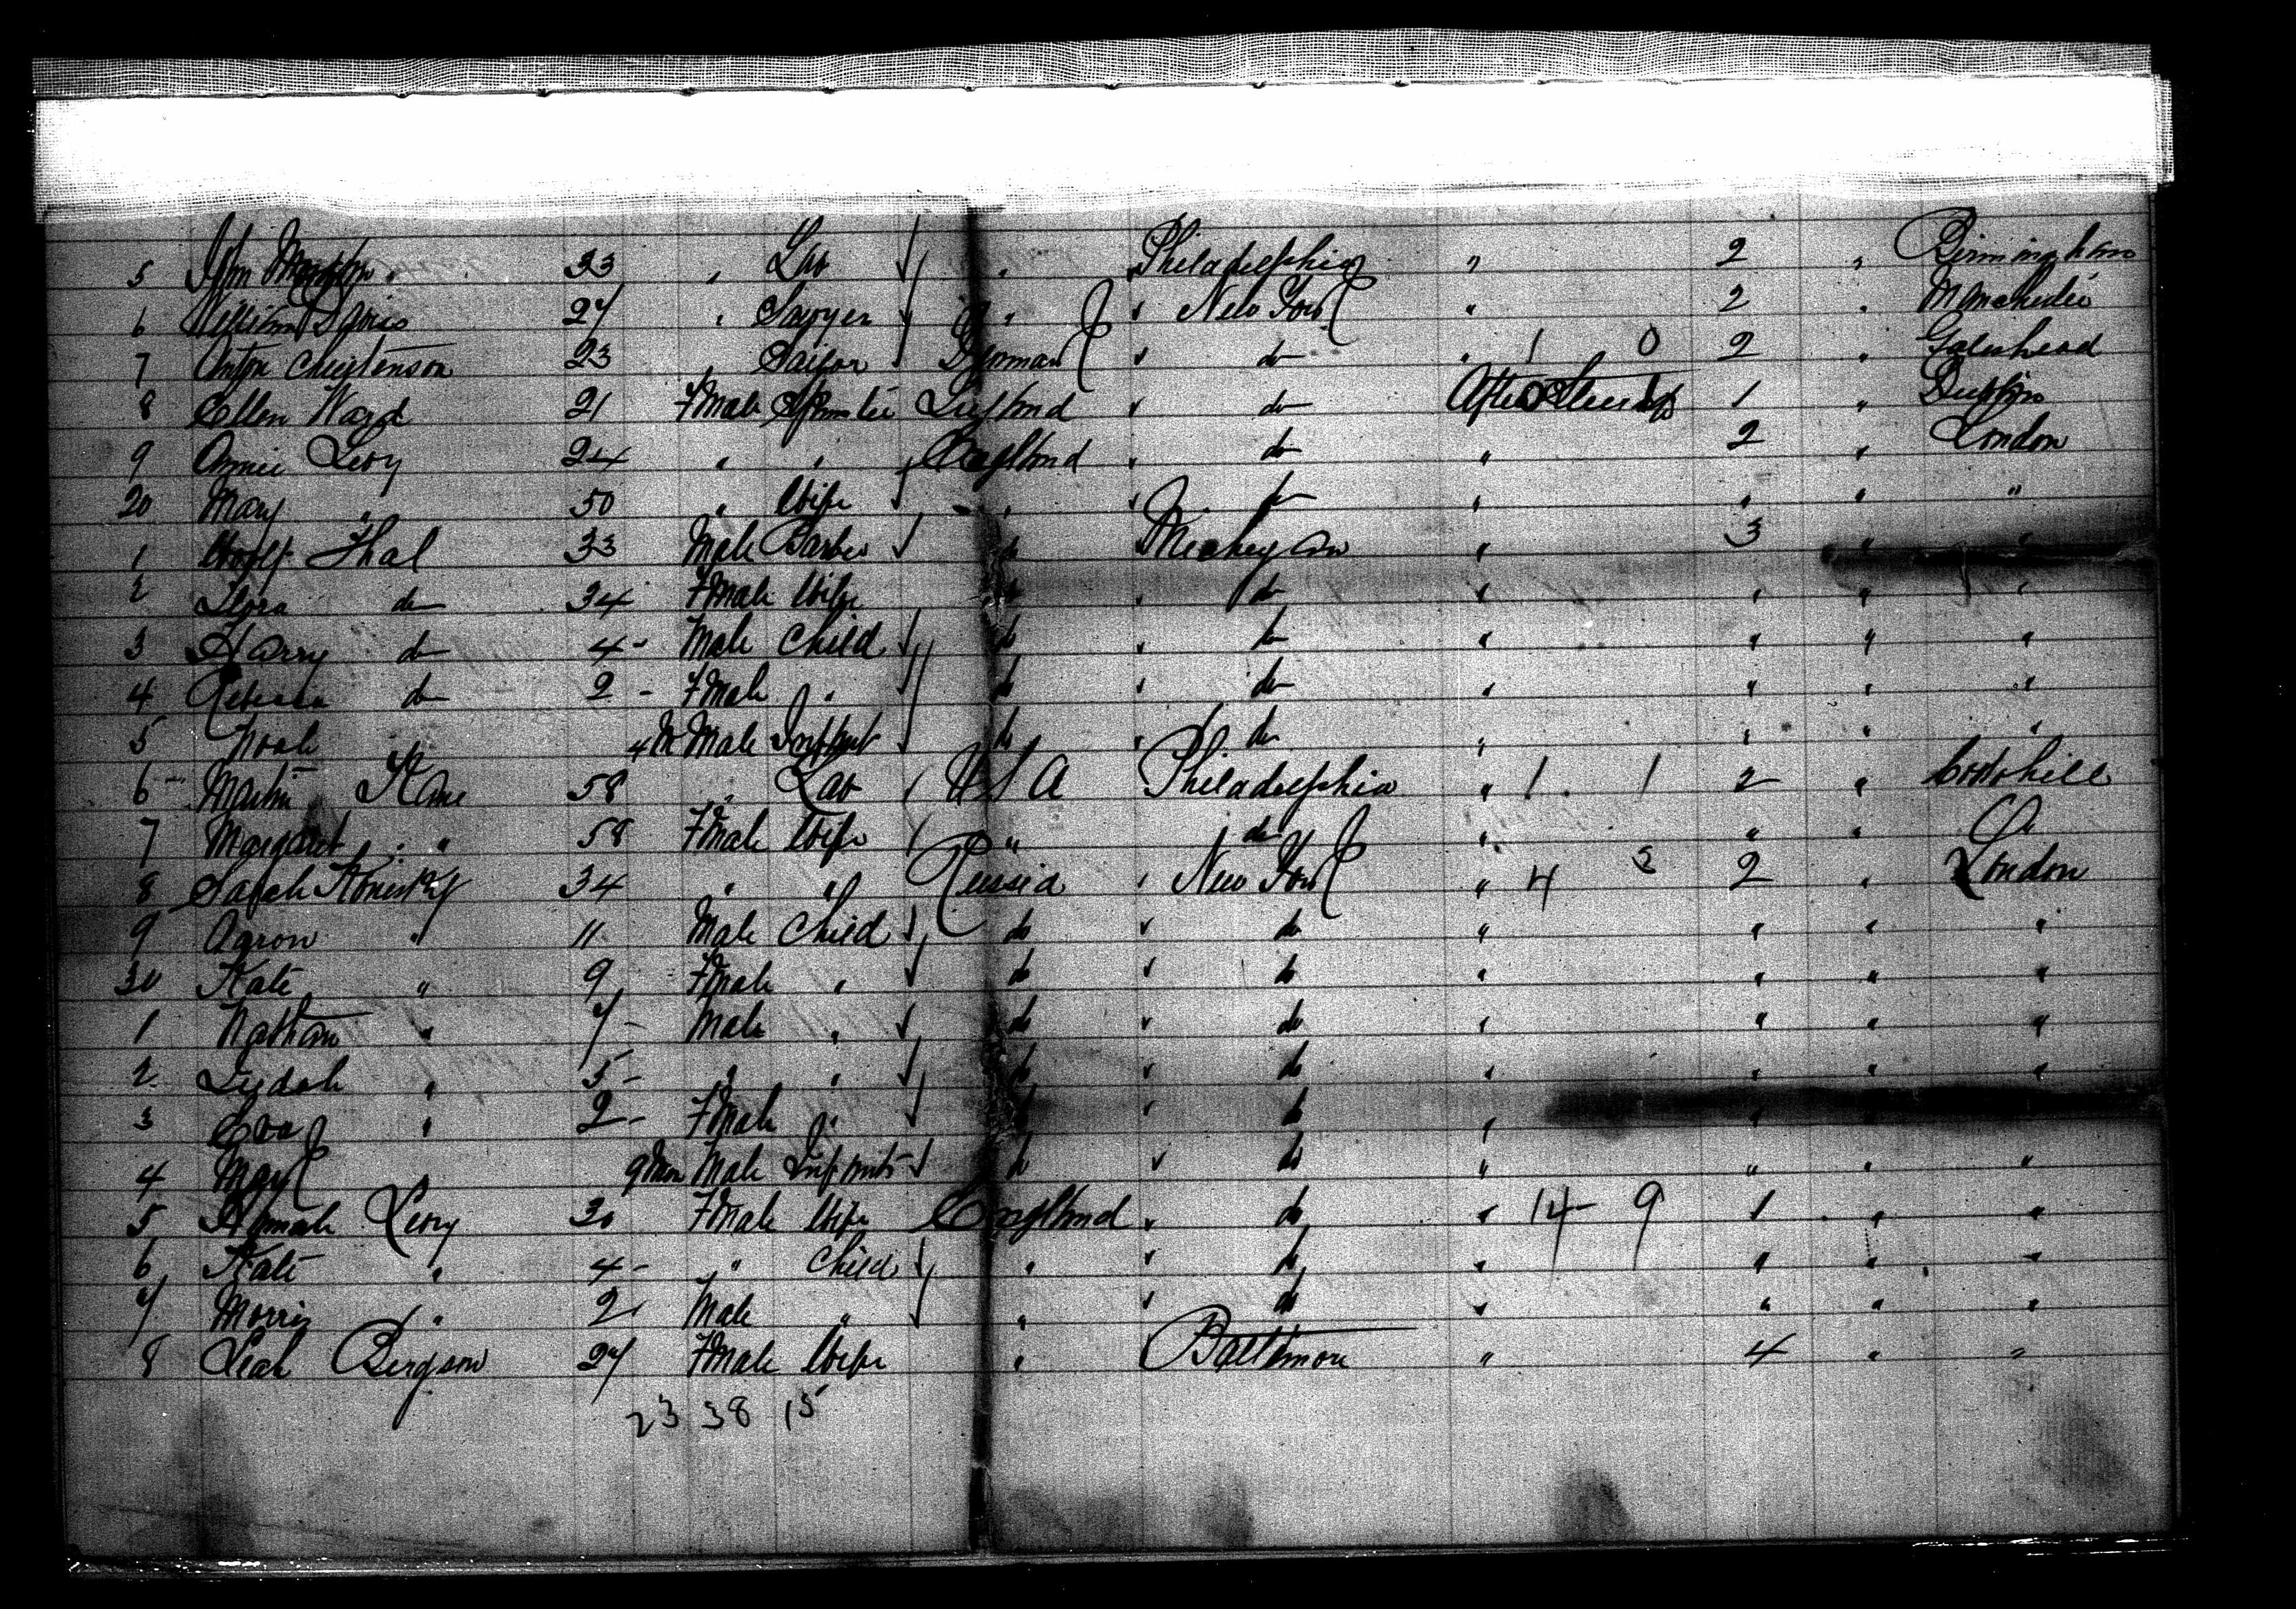 5 John 23 " Lab " Philadelphia " 2 " Birmingham
6 William Davis 27 " Sawyer " New York " 2 " Manchester
7 Anton Christenson 23 " Sailor German do " 1 0 2 " Gateshead
8 Ellen Ward 21 Fmale Spinster Ireland do After Steerage 1 " Dublin
9 Annie Levy 24 " " England do " 2 " London
20 Mary " 50 " Wife " do " " " "
1 Woolf Thal 33 Male Barber do Michigan " 3 " "
2 Flora do 34 Fmale Wife do do " " " "
3 Harry do 4 - Male Child do do " " " "
4 Rebecca do 2 - Fmale " do do " " " "
5 Noah 4 M Male Infant do do " " " "
6 Martin Kane 58 " Lab U S A Philadelphia " 1 1 2 " Cootehill
7 Margaret " 58 Fmale Wife " do " " "
8 Sarah 34 " " Russia New York " 4 3 2 " London
9 Aaron " 11 Male Child do do " " " "
30 Kate " 9 Fmale " do do " " " "
1 Nathan " 7 - Male " do do " " " "
2 " 5 - " " do do " " " "
3 Eva " 2 - Fmale " do do " "
4 9 Mon Male Infant do do " " " "
5 Hannah Levy 30 Fmale Wife England do " 14 - 9 1 " "
6 Kate " 4 - " Child " do " " " "
7 Morris " 2 Male " " do " " " "
8 Leah Bergson 27 Fmale Wife " Baltimore " 4 " "
23 38 15